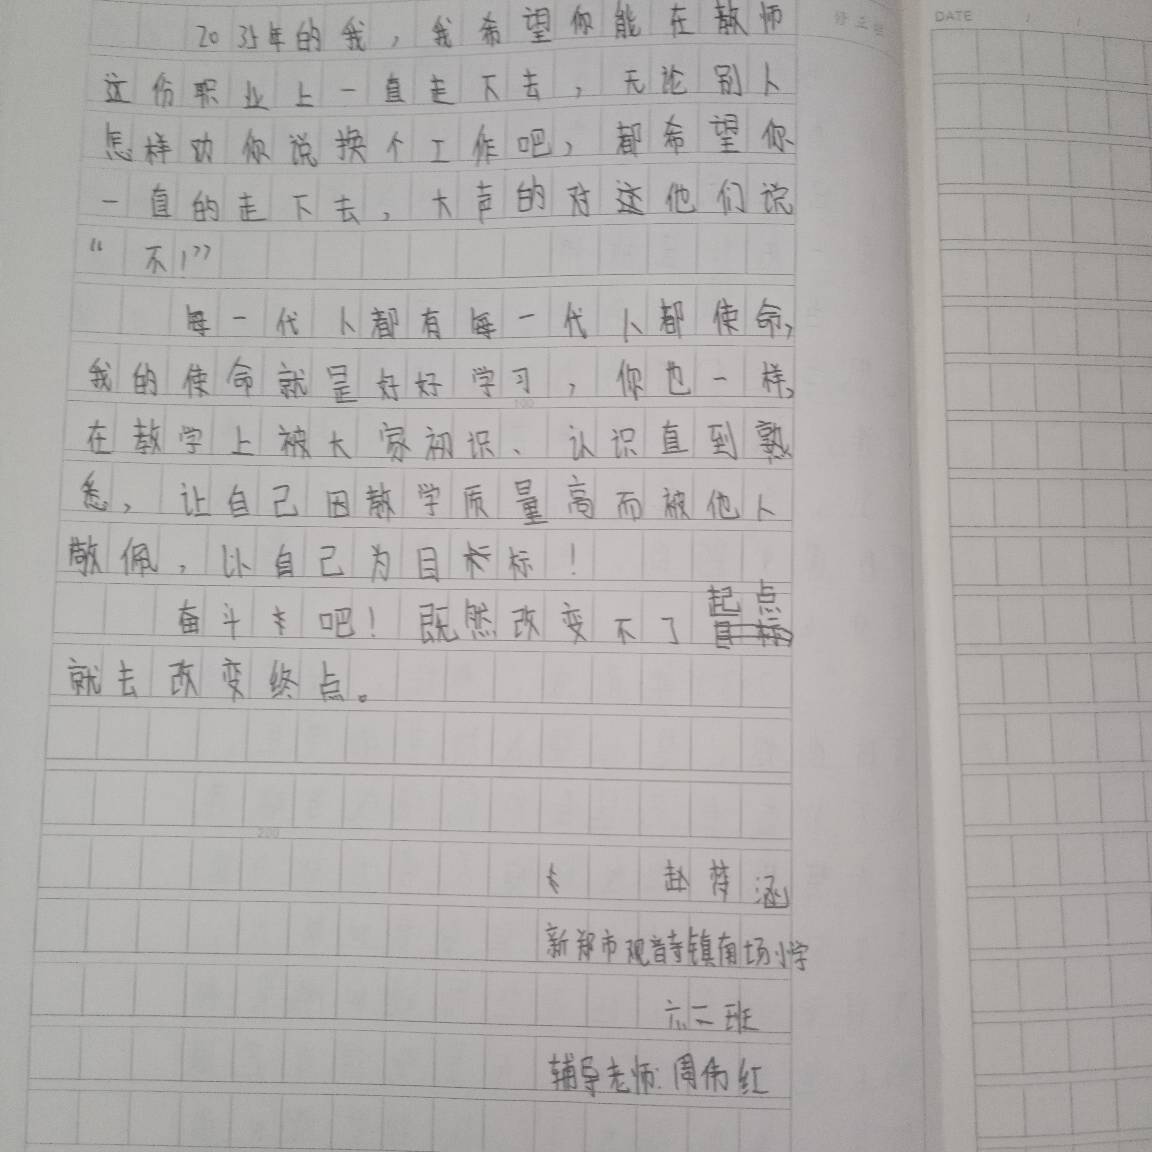 20 35年的我，我希望你能在教师
DATE / /
这份职业上一直走下去，无论别人
怎样劝你说换个工作吧，都希望你
一直的走下去，大声的对这他们说
“不！”
每一代人都有每一代人都使命，
我的使命就是好好学习，你也一样，
100
在教学上被大家初识、认识直到熟
悉，让自己因教学质量高而被他人
敬佩，以自己为目标！
奋斗吧！既然改变不了起点
就去改变终点。
200
赵梦涵
新郑市观音寺镇南场小学
六二班
辅导老师：周伟红